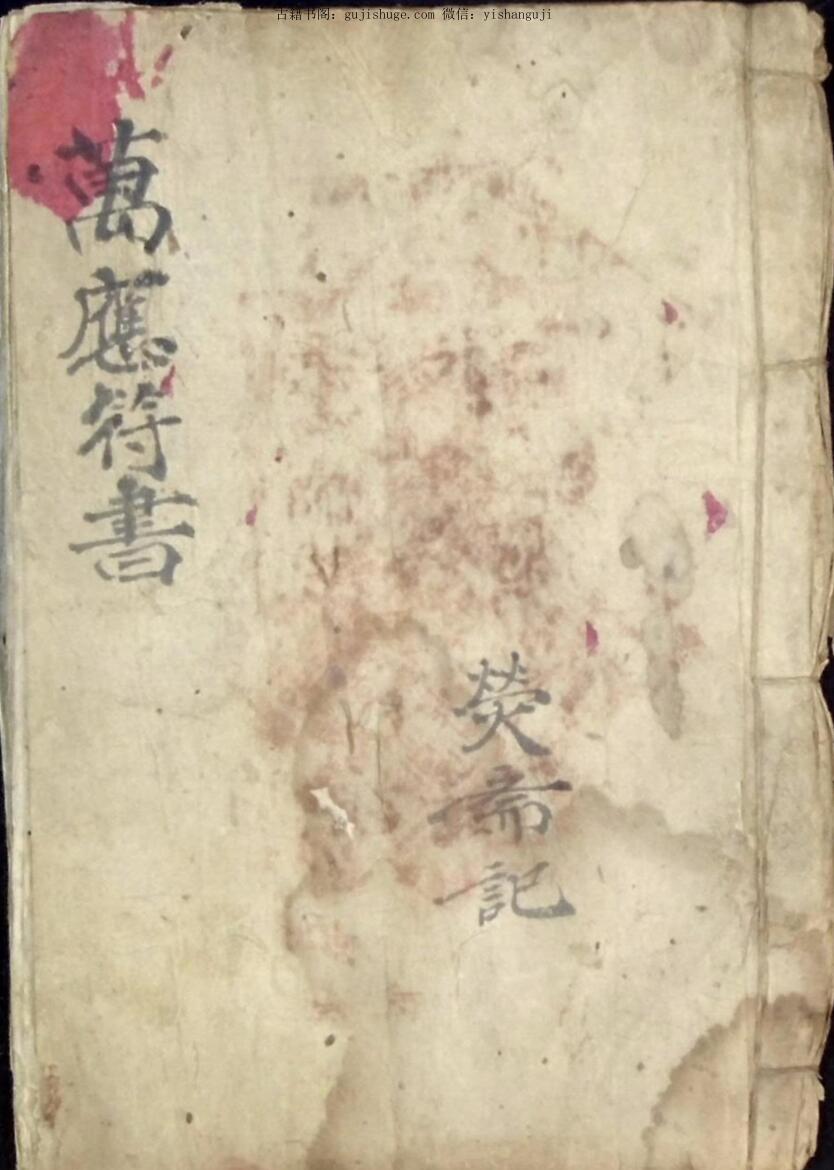 古籍书阁：gujishuge.com 微信：yishanguji
萬應符書
熒斋記